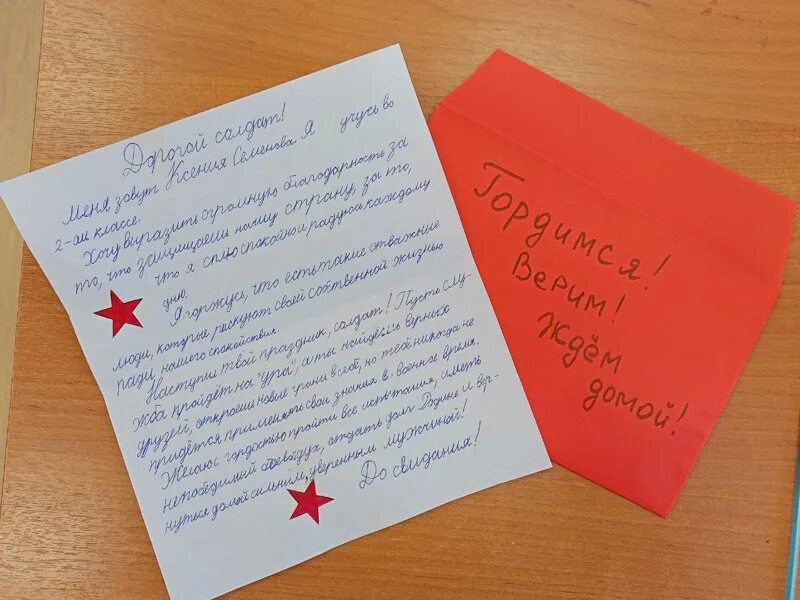 Дорогой солдат!
Меня зовут Ксения Семенова. Я учусь во
2-ом классе.
Хочу выразить огромную благодарность за
то, что защищаешь нашу страну, за то,
что я сплю спокойно и радуюсь каждому
дню.
Я горжусь, что есть такие отважные
люди, которые рискуют своей собственной жизнью
ради нашего спокойствия.
Наступил твой праздник, солдат! Пусть слу-
жба пройдёт на "ура", а ты найдёшь верных
друзей, откроешь новые грани в себе, но тебе никогда не
придётся применять свои знания в военное время.
Желаю с гордостью пройти все испытания, иметь
непобедимый боевой дух, отдать долг Родине и вер-
нуться домой сильным, уверенным мужчиной!
До свидания!
Гордимся!
Верим!
Ждём
домой!